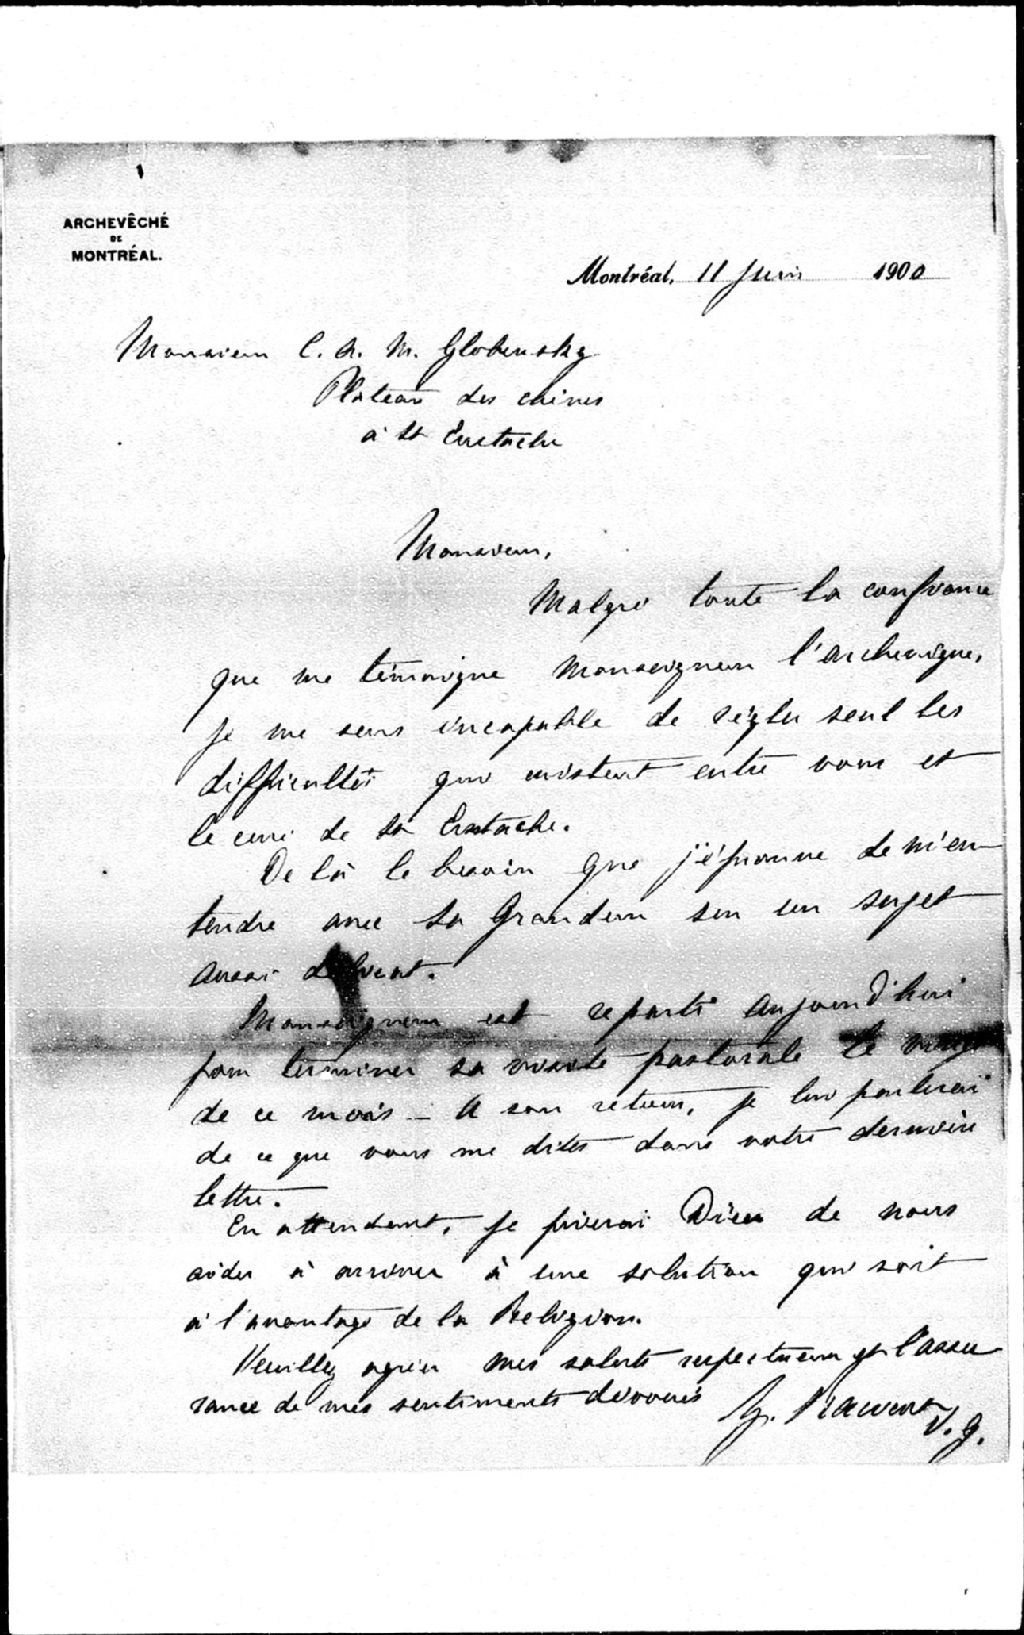 ARCHEVÊCHÉ
DE
MONTRÉAL.
Montréal, 11 Juin 1900
Monsieur C. A. M. Globensky
Plateau des chênes
à St Eustache
Monsieur,
Malgré toute la confiance
que me témoigne Monseigneur l'archevêque,
je me sens incapable de régler seul les
difficultés qui existent entre vous et
le curé de St Eustache.
De là le besoin que j'éprouve de m'en
tendre avec Sa Grandeur sur un sujet
aussi
Monseigneur est reparti aujourd'hui
pour terminer sa visite pastorale le vingt
de ce mois - A son retour, je lui parlerai
de ce que vous me dites dans votre dernière
lettre.
En attendant, je prierai Dieu de nous
aider à arriver à une solution qui soit
à l'avantage de la Religion.
Veuillez agréer mes saluts respectueux et l'assu
rance de mes sentiments dévoués
Z. Racicot
V. G.